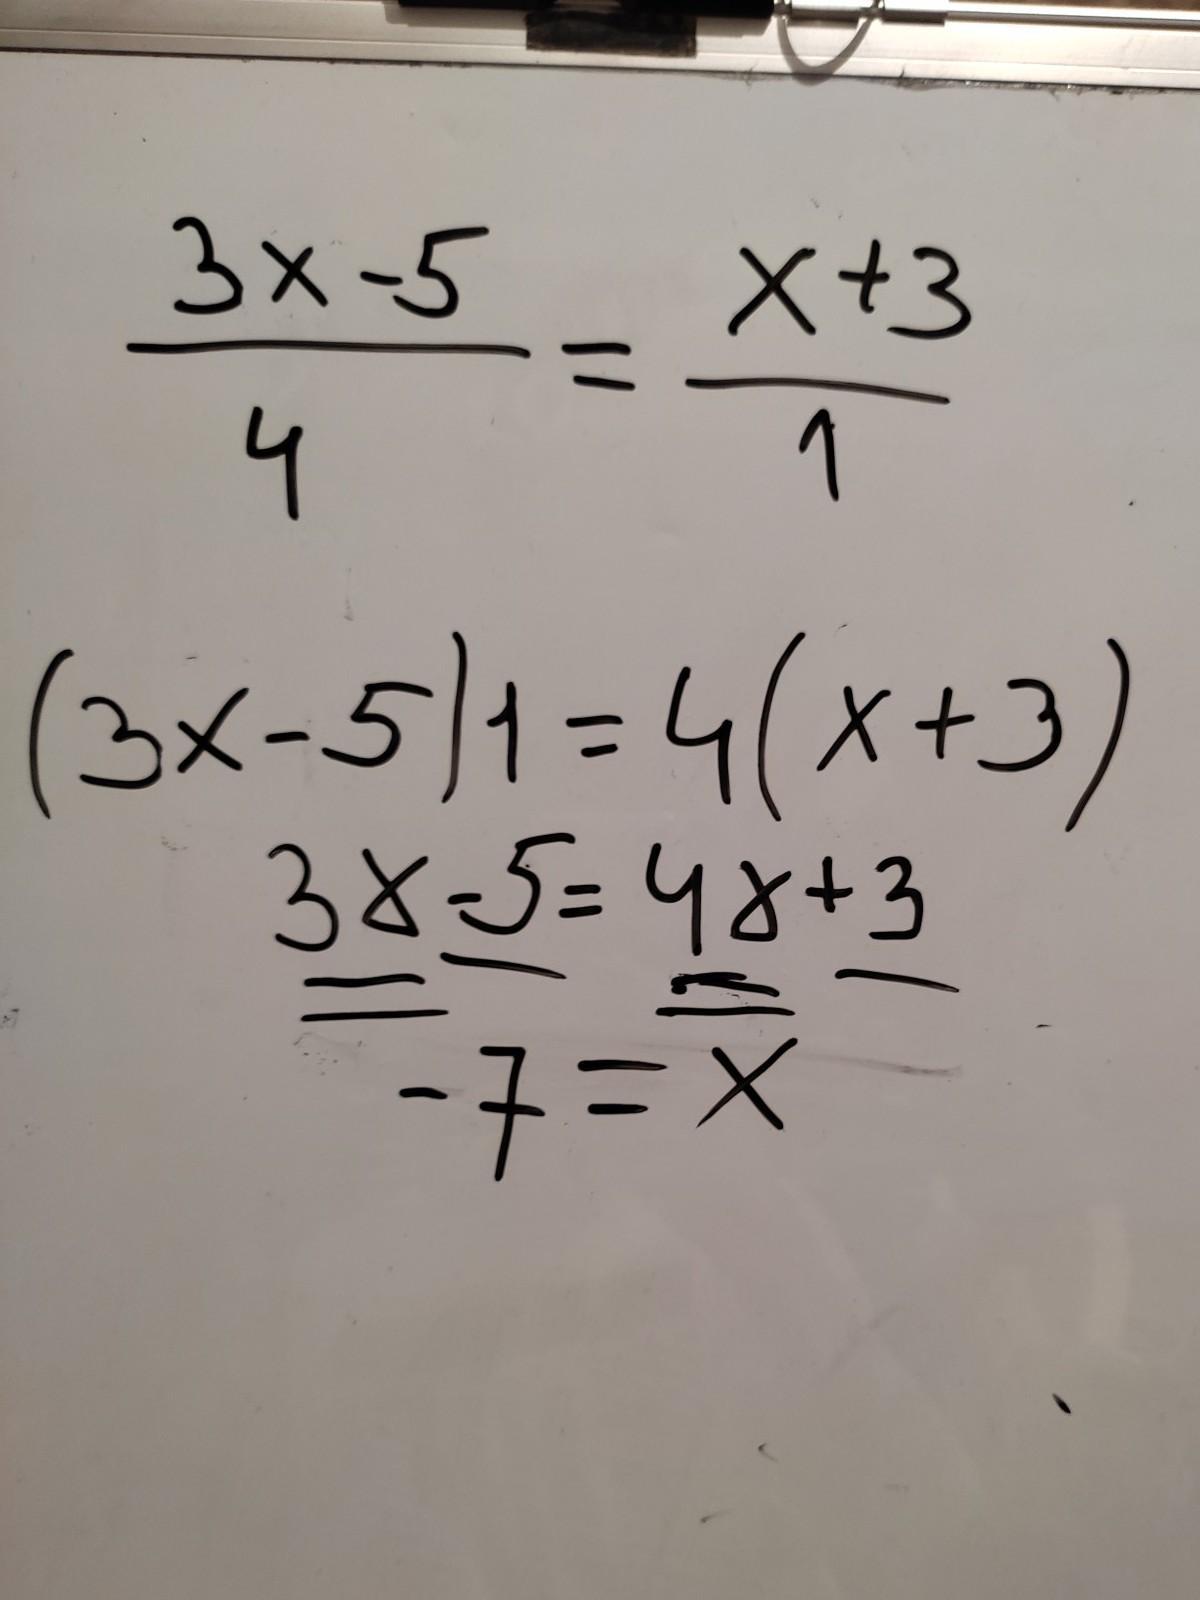 3x-5/4 = x+3/1
(3x-5)1=4(x+3)
3x-5=4x+3
-7=x